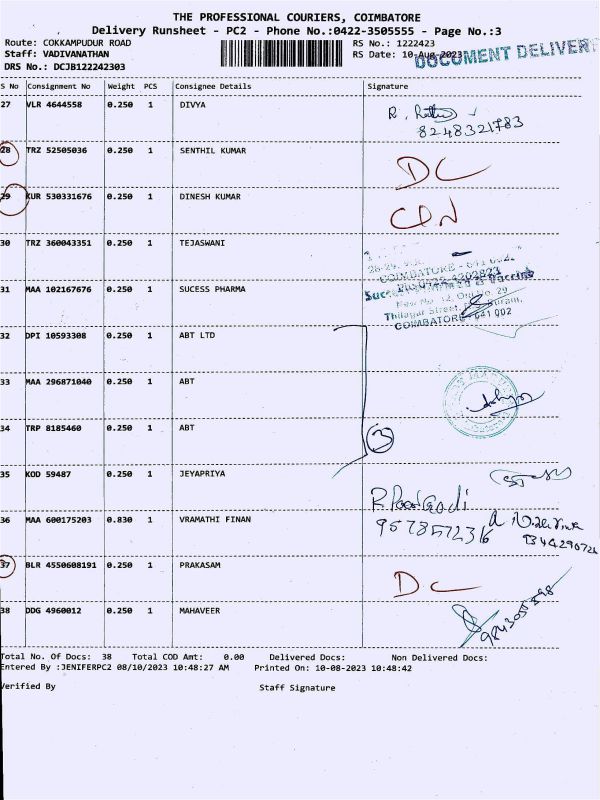 THE PROFESSIONAL COURIERS, COIMBATORE
Delivery Runsheet - PC2 - Phone No.:0422-3505555 - Page No.:3
Route: COKKAMPUDUR ROAD RS No.: 1222423
Staff: VADIVANATHAN RS Date: 10-Aug-2023
DRS No.: DCJB122242303
DOCUMENT DELIVER
S No Consignment No Weight PCS Consignee Details Signature
27 VLR 4644558 0.250 1 DIVYA
8248321783
28 TRZ 52505036 0.250 1 SENTHIL KUMAR DC
29 KUR 530331676 0.250 1 DINESH KUMAR
30 TRZ 360043351 0.250 1 TEJASWANI
COIMBATORE - 641 002.
31 MAA 102167676 0.250 1 SUCESS PHARMA
Thilagar Street,
COIMBATORE - 641 002
32 DPI 10593308 0.250 1 ABT LTD
33 MAA 296871040 0.250 1 ABT
34 TRP 8185460 0.250 1 ABT
3
35 KOD 59487 0.250 1 JEYAPRIYA
36 MAA 600175203 0.830 1 VRAMATHI FINAN
9578572316
37 BLR 4550608191 0.250 1 PRAKASAM DC
38 DDG 4960012 0.250 1 MAHAVEER
Total No. Of Docs: 38 Total COD Amt: 0.00 Delivered Docs: Non Delivered Docs:
Entered By :JENIFERPC2 08/10/2023 10:48:27 AM Printed On: 10-08-2023 10:48:42
Verified By Staff Signature